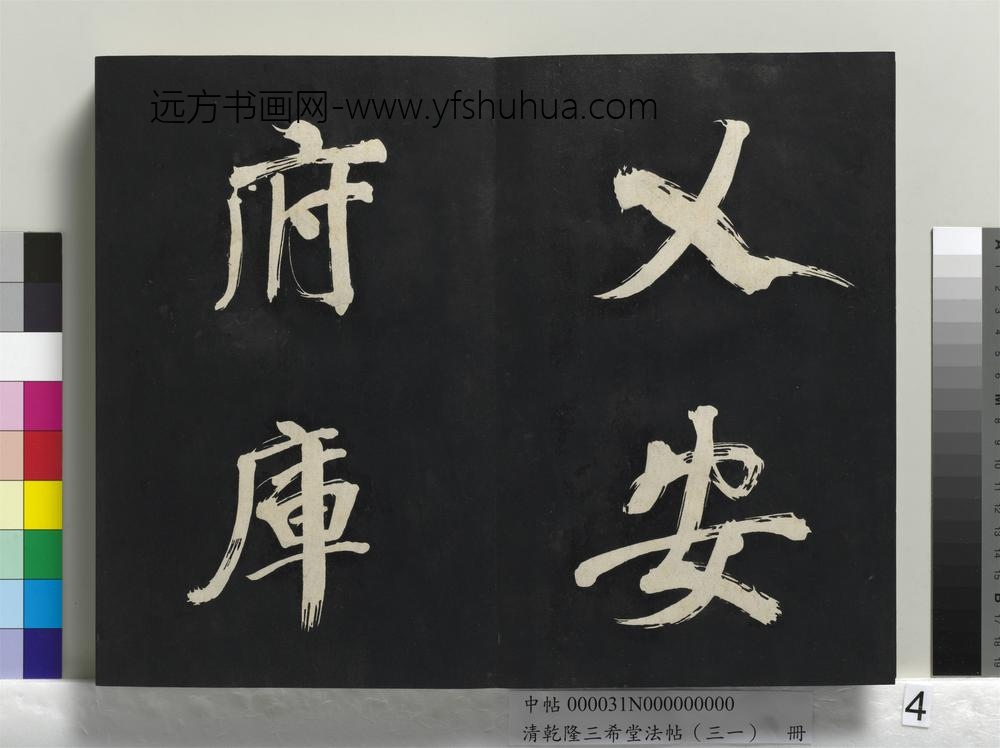 远方书画网-www.yfshuhua.com
乂安
府庫
中帖 000031N000000000
清乾隆三希堂法帖（三一） 冊
4